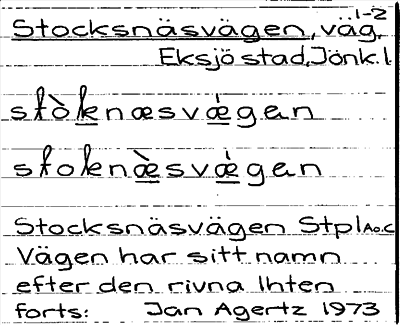 1-2
Stocksnäsvägen, väg.
Eksjö stad, Jönk. l.
stòknæsvǽgen
stoknæ̀svǽgen
Stocksnäsvägen Stpl A o. C
Vägen har sitt namn
efter den rivna lhten
forts: Jan Agertz 1973